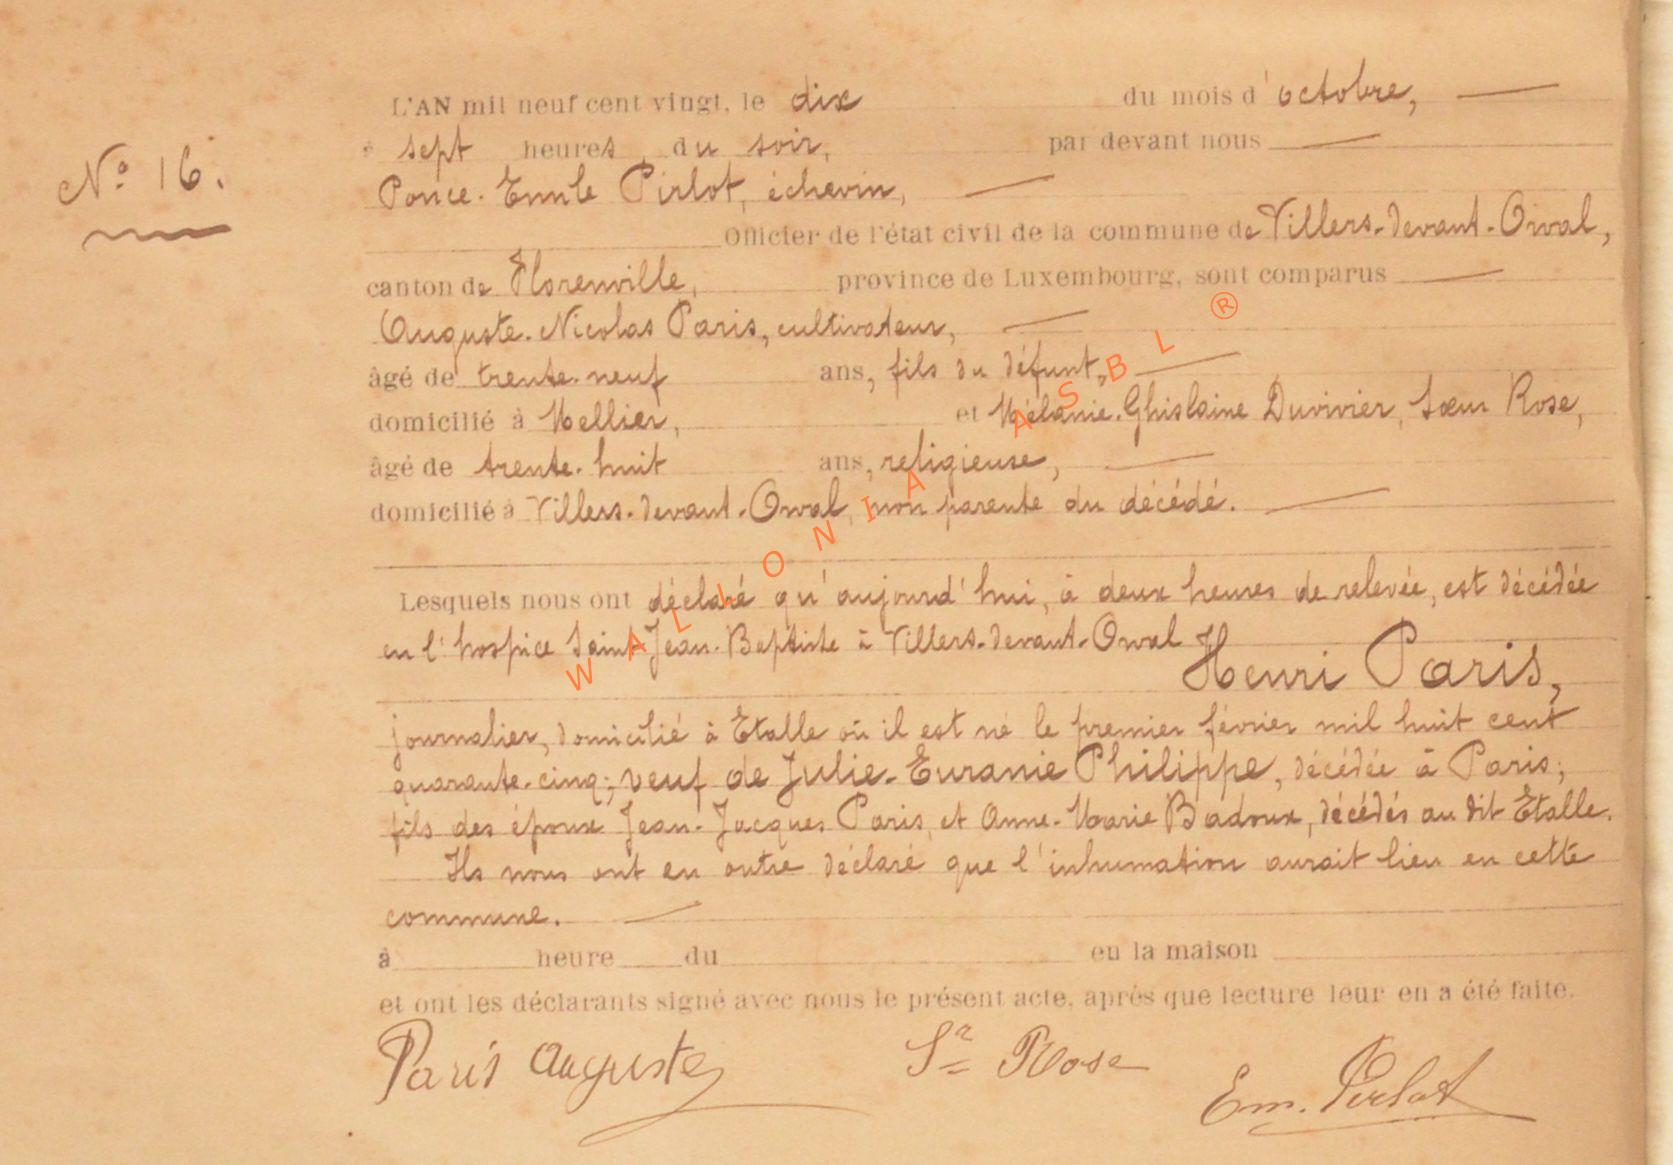 L'AN mil neuf cent vingt, le dix du mois d'octobre,
à sept heures du soir, par devant nous
N° 16.
Ponce-Emile Pirlot, échevin,
Officier de l'état civil de la commune de Villers-devant-Orval,
canton de Florenville, province de Luxembourg, sont comparus
Auguste-Nicolas Paris, cultivateur,
âgé de trente-neuf ans, fils du défunt,
domicilié à Mellier, et Mélanie-Ghislaine Duvivier, Sœur Rose,
âgé de trente-huit ans, religieuse,
domicilié à Villers-devant-Orval, non parente du décédé.
Lesquels nous ont déclaré qu'aujourd'hui, à deux heures de relevée, est décédée
en l'hospice Saint-Jean-Baptiste à Villers-devant-Orval Henri Paris,
journalier, domicilié à Etalle où il est né le premier février mil huit cent
quarante-cinq; veuf de Julie-Euranie Philippe, décédée à Paris;
fils des époux Jean-Jacques Paris, et Anne-Marie Badoux, décédés au dit Etalle.
Ils nous ont en outre déclaré que l'inhumation aurait lieu en cette
commune.
à heure du en la maison
et ont les déclarants signé avec nous le présent acte, après que lecture leur en a été faite.
Paris Auguste Sr Rose
Em. Pirlot
WALLONIA ASBL ®